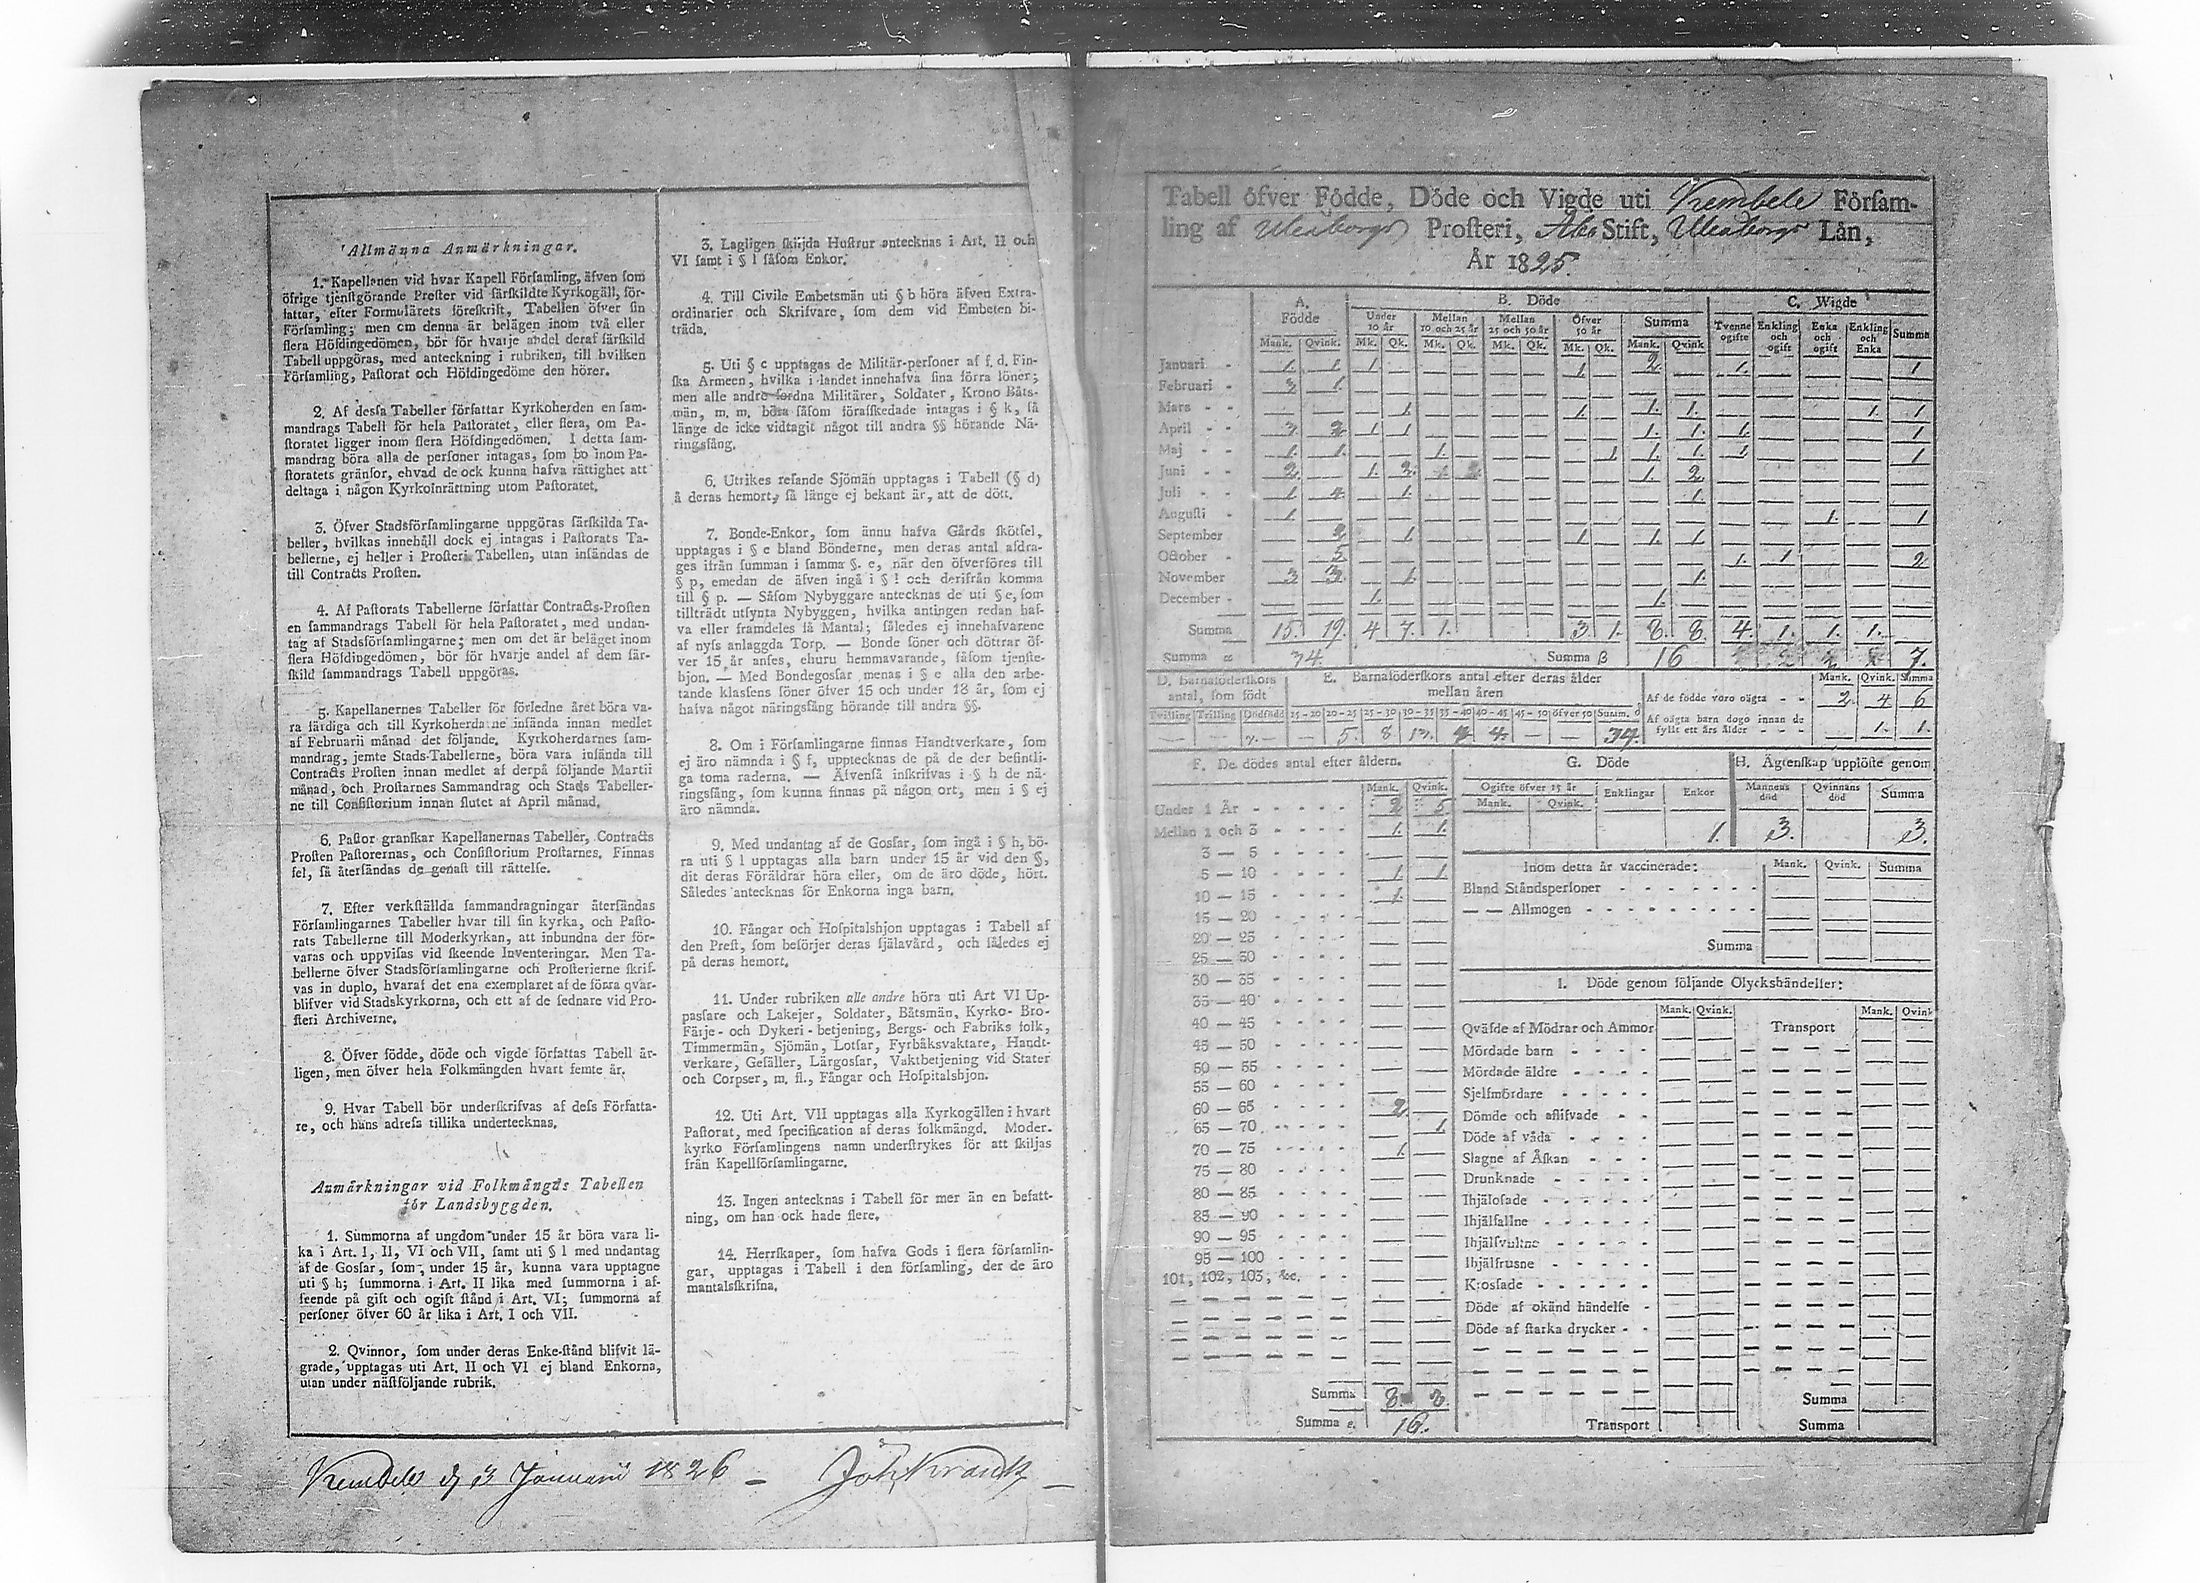 Allmänna Anmärkningar.
1. Kapellanen vid hvar Kapell Församling, äfven som
öfrige tjenstgörande Prester vid särskildte Kyrkogäll, för-
fattar, efter Formulärets föreskrift, Tabellen öfver sin
Församling; men om denna är belägen inom två eller
flera Höfdingedömen, bör för hvarje andel deraf särskild
Tabell uppgöras, med anteckning i rubriken, till hvilken
Församling, Pastorat och Höfdingedöme den hörer.
2. Af dessa Tabeller författar Kyrkoherden en sam-
mandrags Tabell för hela Pastoratet, eller flera, om Pa-
storatet ligger inom flera Höfdingedömen. I detta sam-
mandrag böra alla de personer intagas, som bo inom Pa-
storatets gränsor, ehvad de ock kunna hafva rättighet att
deltaga i någon Kyrkoinrättning utom Pastoratet.
3. Öfver Stadsförsamlingarne uppgöras särskilda Ta-
beller, hvilkas innehåll dock ej intagas i Pastorats Ta-
bellerne, ej heller i Prosteri Tabellen, utan insändas de
till Contracts Prosten.
4. Af Pastorats Tabellerne författar Contracts-Prosten
en sammandrags Tabell för hela Pastoratet, med undan-
tag af Stadsförsamlingarne; men om det är beläget inom
flera Höfdingedömen, bör för hvarje andel af dem sär-
skild sammandrags Tabell uppgöras.
5. Kapellanernes Tabeller för förledne året böra va-
ra färdiga och till Kyrkoherdarne insända innan medlet
af Februarii månad det följande. Kyrkoherdarnes sam-
mandrag, jemte Stads-Tabellerne, böra vara insända till
Contracts Prosten innan medlet af derpå följande Martii
månad, och Prostarnes Sammandrag och Stads Tabeller-
ne till Consistorium innan slutet af April månad.
6. Pastor granskar Kapellanernas Tabeller, Contracts
Prosten Pastorernas, och Consistorium Prostarnes. Finnas
fel, så återsändas de genast till rättelse.
7. Efter verkställda sammandragningar återsändas
Församlingarnes Tabeller hvar till sin kyrka, och Pasto-
rats Tabellerne till Moderkyrkan, att inbundna der för-
varas och uppvisas vid skeende Inventeringar. Men Ta-
bellerne öfver Stadsförsamlingarne och Prosterierne skrif-
vas in duplo, hvaraf det ena exemplaret af de förra qvar-
blifver vid Stadskyrkorna, och ett af de sednare vid Pro-
steri Archiverne.
8. Öfver födde, döde och vigde författas Tabell år-
ligen, men öfver hela Folkmängden hvart femte år.
9. Hvar Tabell bör underskrifvas af dess Författa-
re, och hans adress tillika undertecknas.
Anmärkningar vid Folkmängds Tabellen
för Landsbyggden.
1. Summorna af ungdom under 15 år böra vara li-
ka i Art. I, II, VI och VII, samt uti § l med undantag
af de Gossar, som, under 15 år, kunna vara upptagne
uti § h; summorna i Art. II lika med summorna i af-
seende på gift och ogift stånd i Art. VI; summorna af
personer öfver 60 år lika i Art. I och VII.
2. Qvinnor, som under deras Enke-stånd blifvit lä-
grade, upptagas uti Art. II och VI ej bland Enkorna,
utan under nästföljande rubrik.
3. Lagligen skiljda Hustrur antecknas i Art. II och
VI samt i § l såsom Enkor.
4. Till Civile Embetsmän uti § b höra äfven Extra-
ordinarier och Skrifvare, som dem vid Embeten bi-
träda.
5. Uti § c upptagas de Militär-personer af f. d. Fin-
ska Armeen, hvilka i landet innehafva sina förra löner;
men alle andre fordna Militärer, Soldater, Krono Båts-
män, m. m. böra såsom förafskedade intagas i § k, så
länge de icke vidtagit något till andra §§ hörande Nä-
ringsfång.
6. Utrikes resande Sjömän upptagas i Tabell (§ d)
å deras hemort, så länge ej bekant är, att de dött.
7. Bonde-Enkor, som ännu hafva Gårds skötsel,
upptagas i § e bland Bönderne, men deras antal afdra-
ges ifrån summan i samma §. e, när den öfverföres till
§ p, emedan de äfven ingå i § l och derifrån komma
till § p. — Såsom Nybyggare antecknas de uti § e, som
tillträdt utsynta Nybyggen, hvilka antingen redan haf-
va eller framdeles få Mantal; således ej innehafvarene
af nyss anlaggda Torp. — Bonde söner och döttrar öf-
ver 15 år anses, ehuru hemmavarande, såsom tjenste-
hjon. — Med Bondegossar menas i § e alla den arbe-
tande klassens söner öfver 15 och under 18 år, som ej
hafva något näringsfång hörande till andra §§.
8. Om i Församlingarne finnas Handtverkare, som
ej äro nämnda i § f, upptecknas de på de der befintli-
ga toma raderna. — Äfvenså inskrifvas i § h de nä-
ringsfång, som kunna finnas på någon ort, men i § ej
äro nämnda.
9. Med undantag af de Gossar, som ingå i § h, bö-
ra uti § l upptagas alla barn under 15 år vid den §,
dit deras Föräldrar höra eller, om de äro döde, hört.
Således antecknas för Enkorna inga barn.
10. Fångar och Hospitalshjon upptagas i Tabell af
den Prest, som besörjer deras själavård, och således ej
på deras hemort.
11. Under rubriken alle andre höra uti Art VI Up-
passare och Lakejer, Soldater, Båtsmän, Kyrko- Bro-
Färje- och Dykeri-betjening, Bergs- och Fabriks folk,
Timmermän, Sjömän, Lotsar, Fyrbåksvaktare, Handt-
verkare, Gesäller, Lärgossar, Vaktbetjening vid Stater
och Corpser, m. fl., Fångar och Hospitalshjon.
12. Uti Art. VII upptagas alla Kyrkogällen i hvart
Pastorat, med specification af deras folkmängd. Moder-
kyrko Församlingens namn understrykes för att skiljas
från Kapellförsamlingarne.
13. Ingen antecknas i Tabell för mer än en befatt-
ning, om han ock hade flere.
14. Herrskaper, som hafva Gods i flera församlin-
gar, upptagas i Tabell i den församling, der de äro
mantalsskrifna.
d 3 Januarii 1826 –
Tabell öfver Födde, Döde och Vigde uti Församling
ling af Uleåborgs Prosteri, Åbo Stift, Uleåborgs Län,
År 1825.
A. Födde B. Döde C. Wigde
Under 10 år Mellan 10 och 25 år Mellan 25 och 50 år Öfver 50 år Summa Tvenne ogifte Enkling och ogift Enka och ogift Enkling och Enka Summa
Mank. Qvink. Mk. Qk. Mk. Qk. Mk. Qk. Mk. Qk. Mank. Qvink
Januari 1. 1. 1 1. 2. 1. 1
Februari 3 1.
Mars 1 1. 1. 1. 1. 1
April 3 2 1 1 1. 1. 1. 1
Maj 1. 1. 1. 1 1. 1. 1 1
Juni 2 1. 2. 1. 2
Juli 1. 4. 1. 1
Augusti 1. 1. 1
September 2 1 1 1. 1
October 5. 1. 1 2
November 3 3. 1. 1.
December 1. 1.
Summa 15. 19. 4 7. 1. 3 1. 8. 8. 4. 1. 1. 1.
Summa α 34. Summa β 16 7.
D. Barnaföderskors antal, som födt
Tvilling Trilling Dödfödd
E. Barnaföderskors antal efter deras ålder mellan åren
15-20 20-25 25-30 30-35 35-40 40-45 45-50 öfver 50 Summ.
5. 8 4. 34.
Mank. Qvink. Summa
Af de födde voro oägta 2 4 6
Af oägta barn dogo innan de
fyllt ett års ålder 1. 1.
F. De dödes antal efter åldern.
Mank. Qvink.
Under 1 År 2 5
Mellan 1 och 3 1. 1.
3 — 5
5 — 10 1 1
10 — 15 1.
15 — 20
20 — 25
25 — 30
30 — 35
35 — 40
40 — 45
45 — 50
50 — 55
55 — 60
60 — 65 2
65 — 70 1
70 — 75 1.
75 — 80
80 — 85
85 — 90
90 — 95
95 — 100
101, 102, 103, &c.
Summa 8 8.
Summa 16.
G. Döde
Ogifte öfver 15 år Enklingar Enkor
Mank. Qvink.
1.
H. Ägtenskap upplöste genom
Mannens död Qvinnans död Summa
3. 3.
Inom detta år vaccinerade: Mank. Qvink. Summa
Bland Ståndspersoner
— — Allmogen
Summa
I. Döde genom följande Olyckshändelser:
Mank. Qvink. Mank. Qvink
Qväfde af Mödrar och Ammor Transport
Mördade barn
Mördade äldre
Sjelfmördare
Dömde och aflifvade
Döde af våda
Slagne af Åskan
Drunknade
Ihjälosade
Ihjälfallne
Ihjälsvultne
Ihjälfrusne
Krossade
Döde af okänd händelse
Döde af starka drycker
Summa
Transport Summa